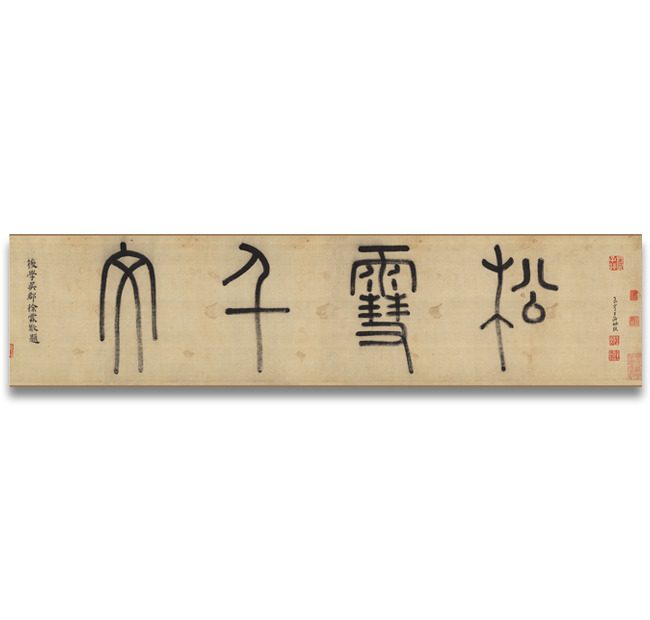 松雪千文
後學吳郡徐霖敬題